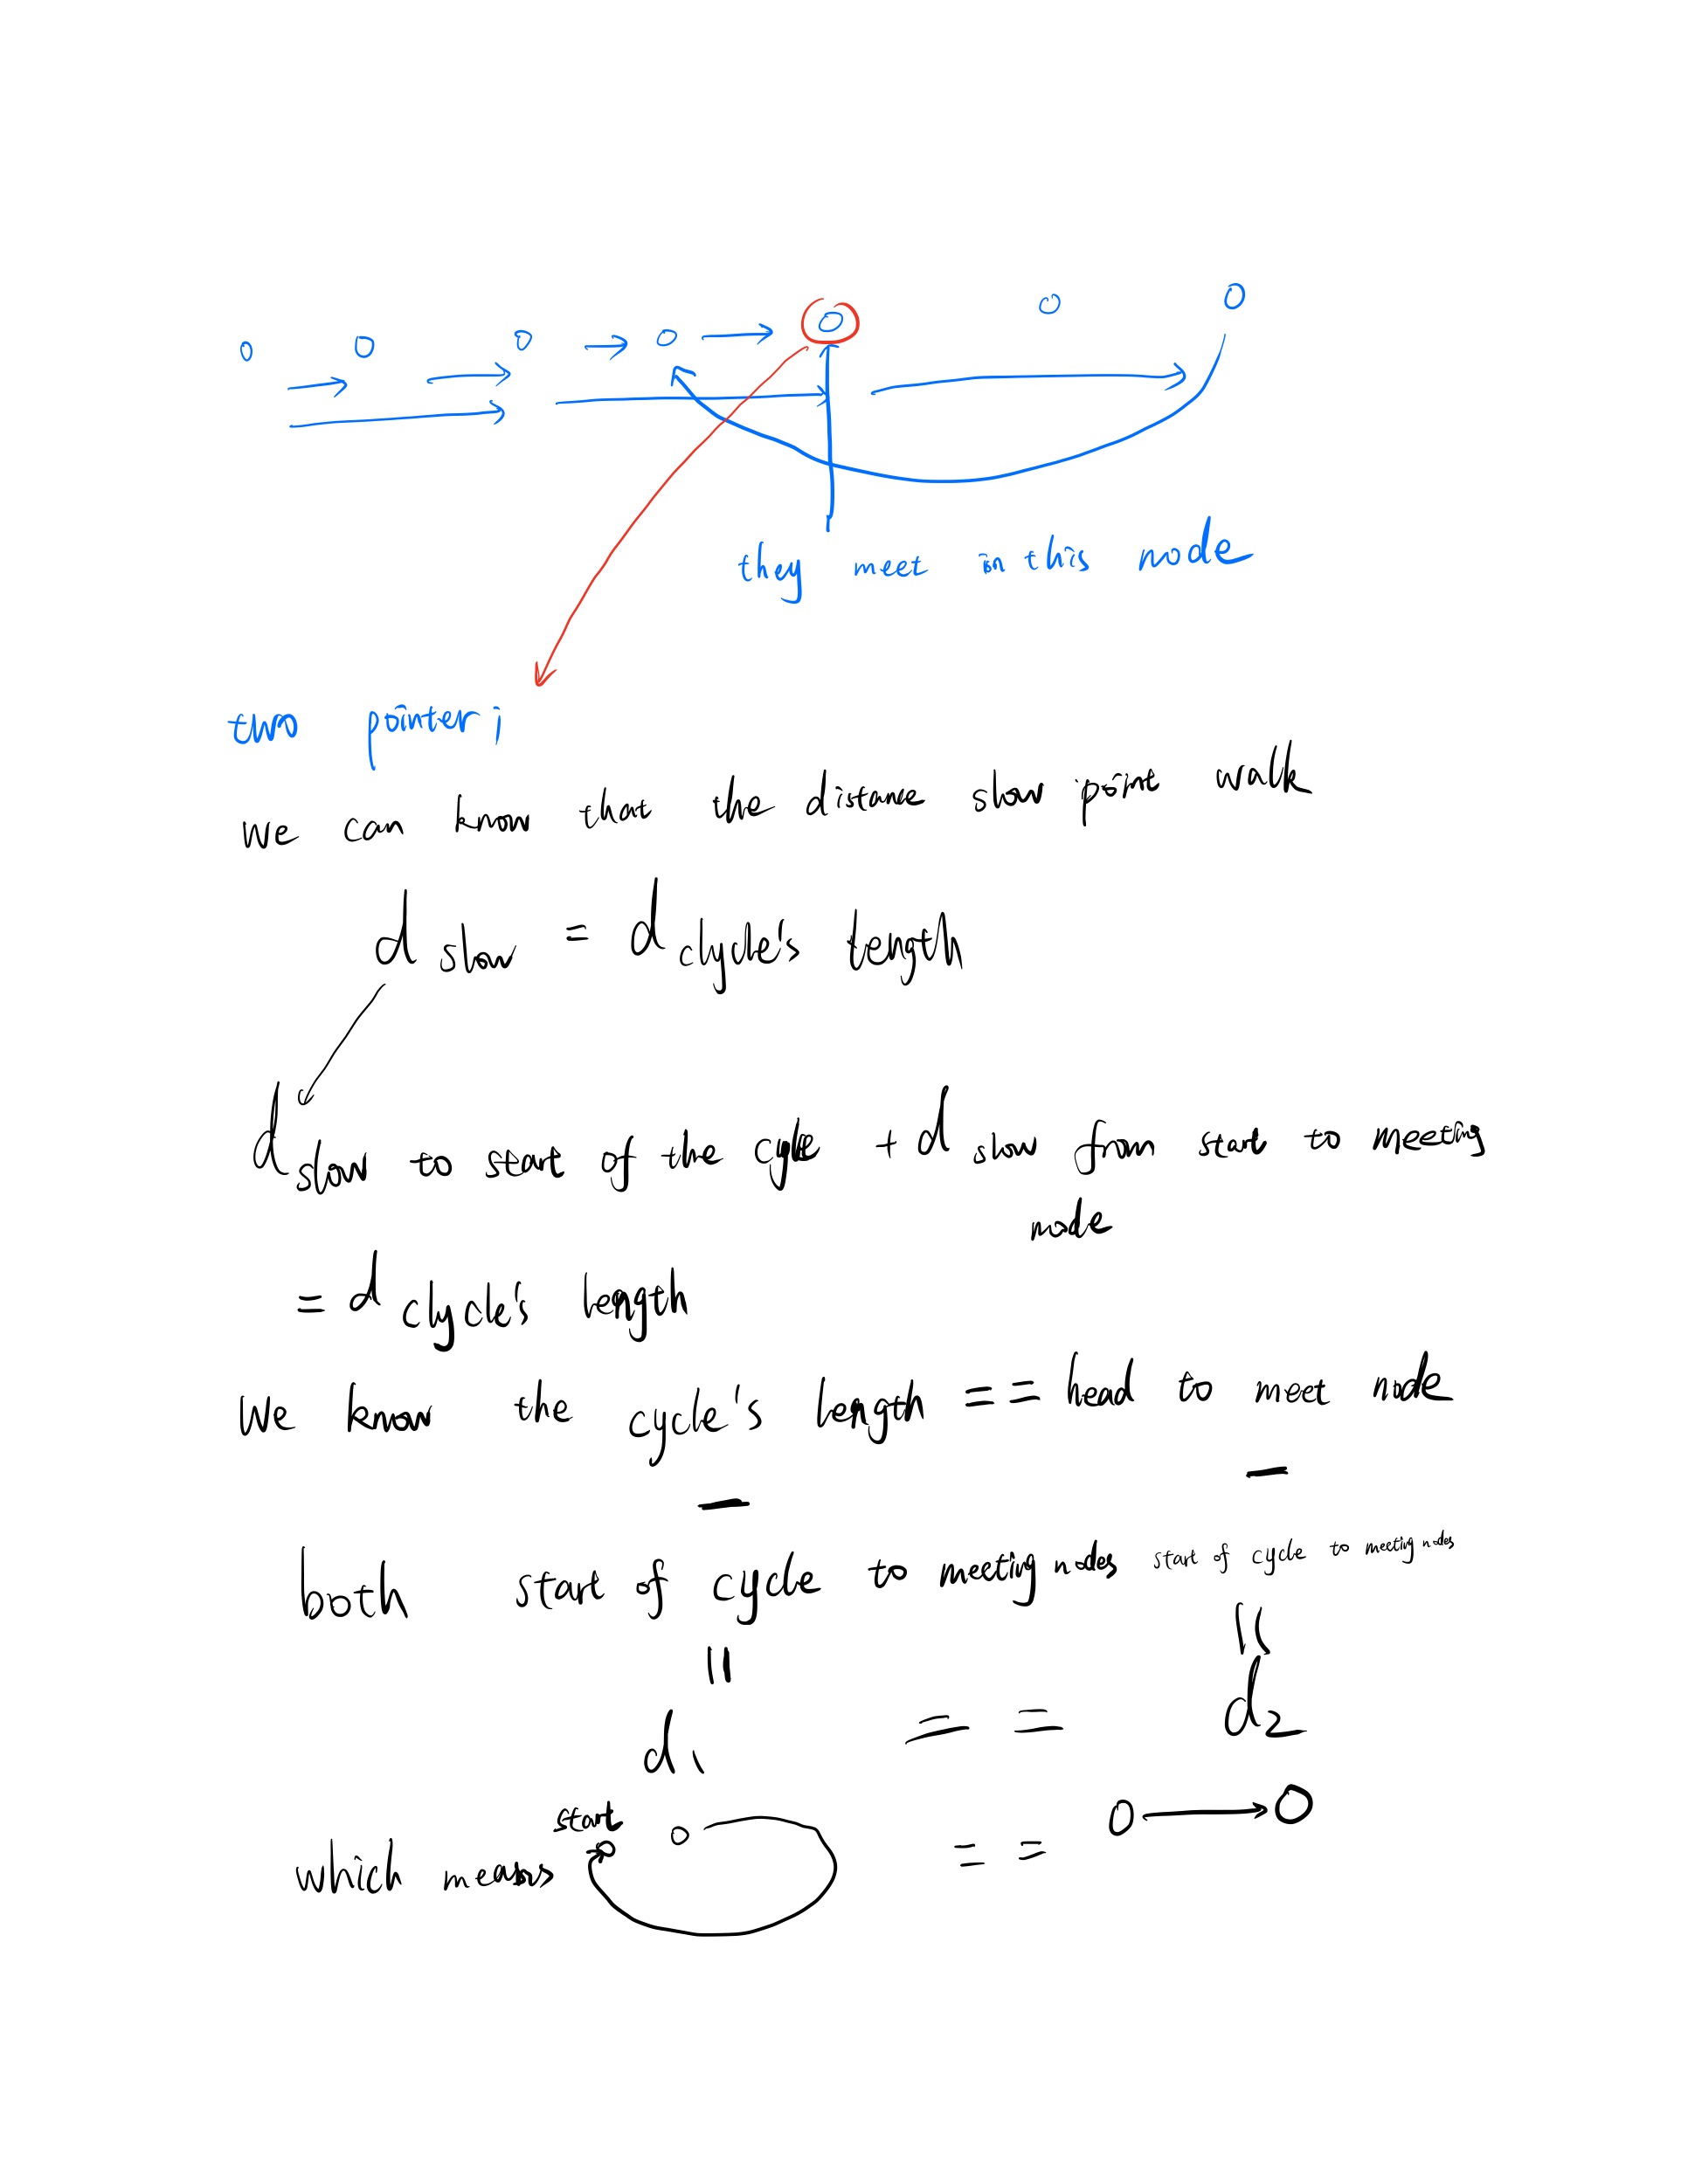 they meet in this node
two pointer;
we can know that the distance slow point walk
d slow = d clycle's length
d slow to start of the cycle + d slow from start to meeting
node
= d clycle's length
we know the cycle's length == head to meet node
— —
both start of cycle to meeting nodes start of cycle to meeting nodes
|| ||
d1 == d2
start
which means ==